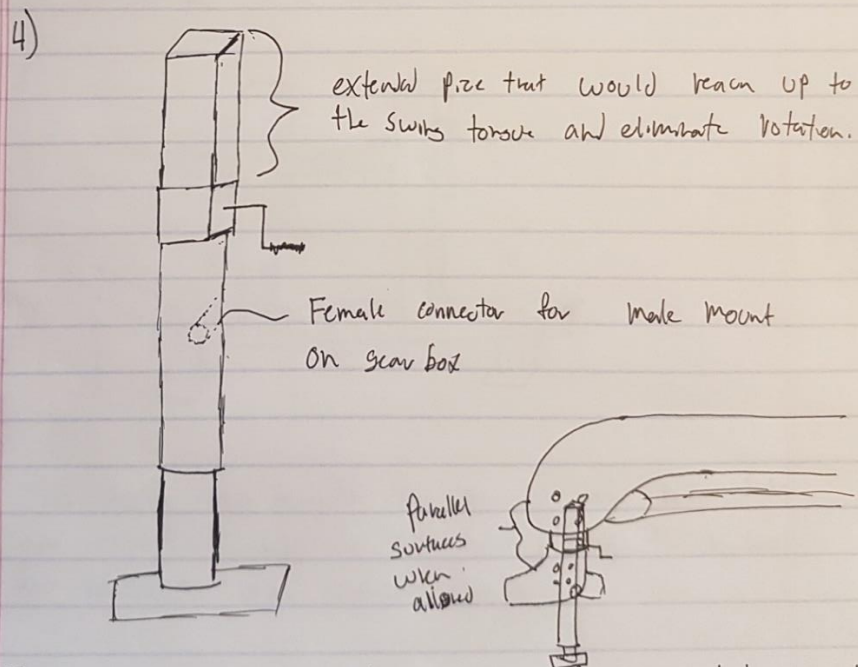 4)
extended piece that would reach up to
the swing tongue and eliminate rotation.
Female connector for male mount
on gear box
Parallel
surfaces
when
allowed